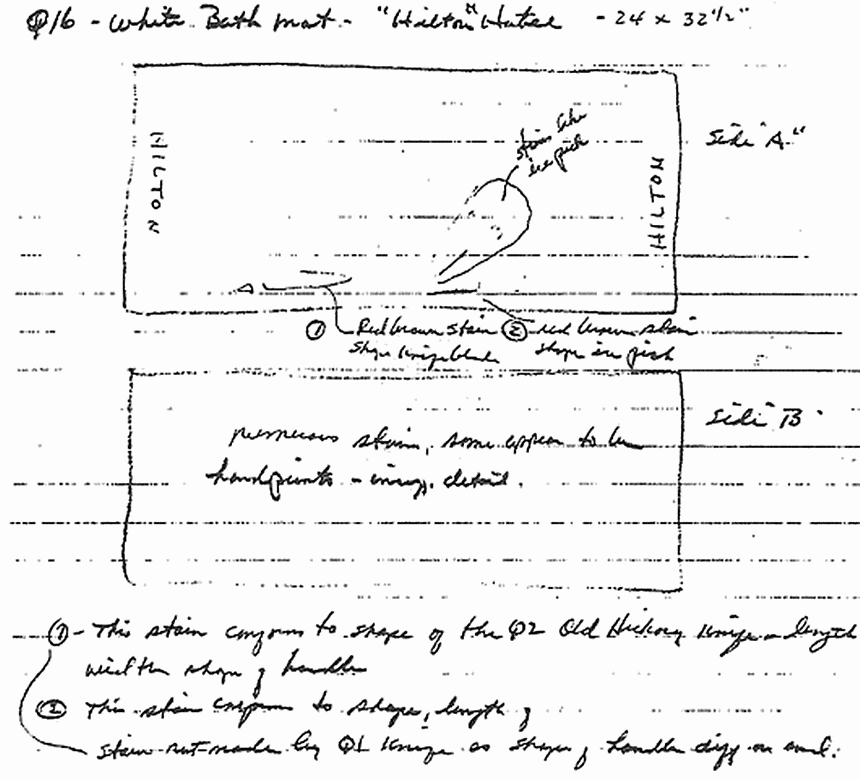 Q16 - White Bath mat - "Hilton" Hotel - 24 x 32 1/2"
Side "A"
HILTON
HILTON
stain like
ice pick
① Red brown stain
shape knife blade
② red brown stain
shape ice pick
Side B
numerous stains, some appear to be
handprints - insuff. detail.
① - This stain conforms to shape of the Q2 Old Hickory Knife - length
width shape of handle
② This stain conforms to shape, length of
stain not made by Q1 Knife as shape of handle diff on end.